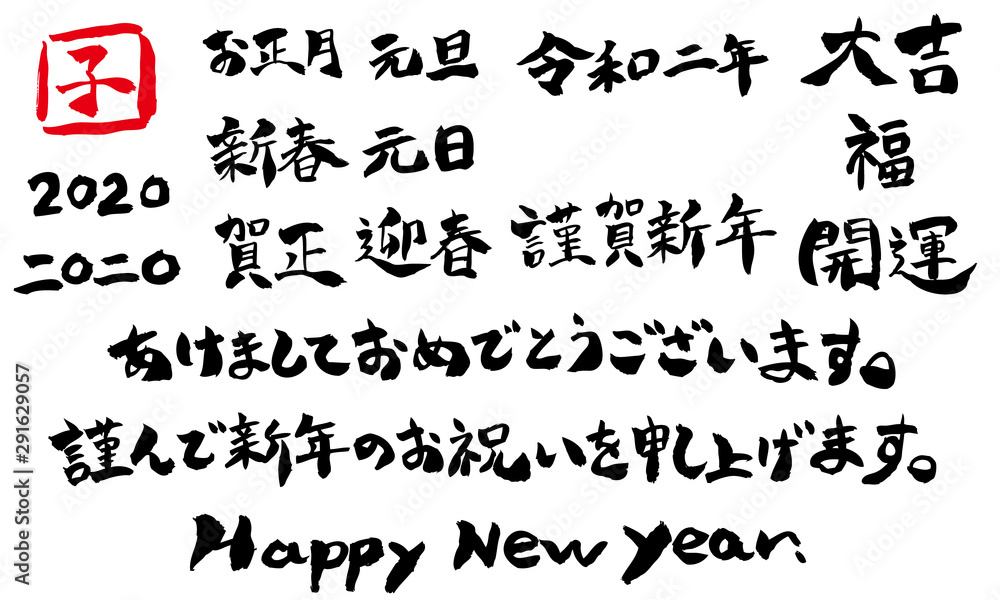 子 お正月 元旦 令和二年 大吉
新春 元日 福
2020
賀正 迎春 謹賀新年 開運
二〇二〇
あけましておめでとうございます。
謹んで新年のお祝いを申し上げます。
Happy New Year.
Adobe Stock | #291629057